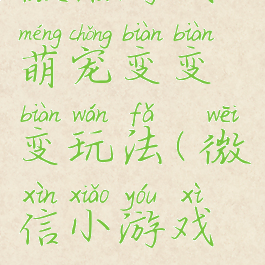 méng chǒng biàn biàn
萌宠变变
biàn wán fǎ wēi
变玩法(微
xìn xiǎo yóu xì
信小游戏